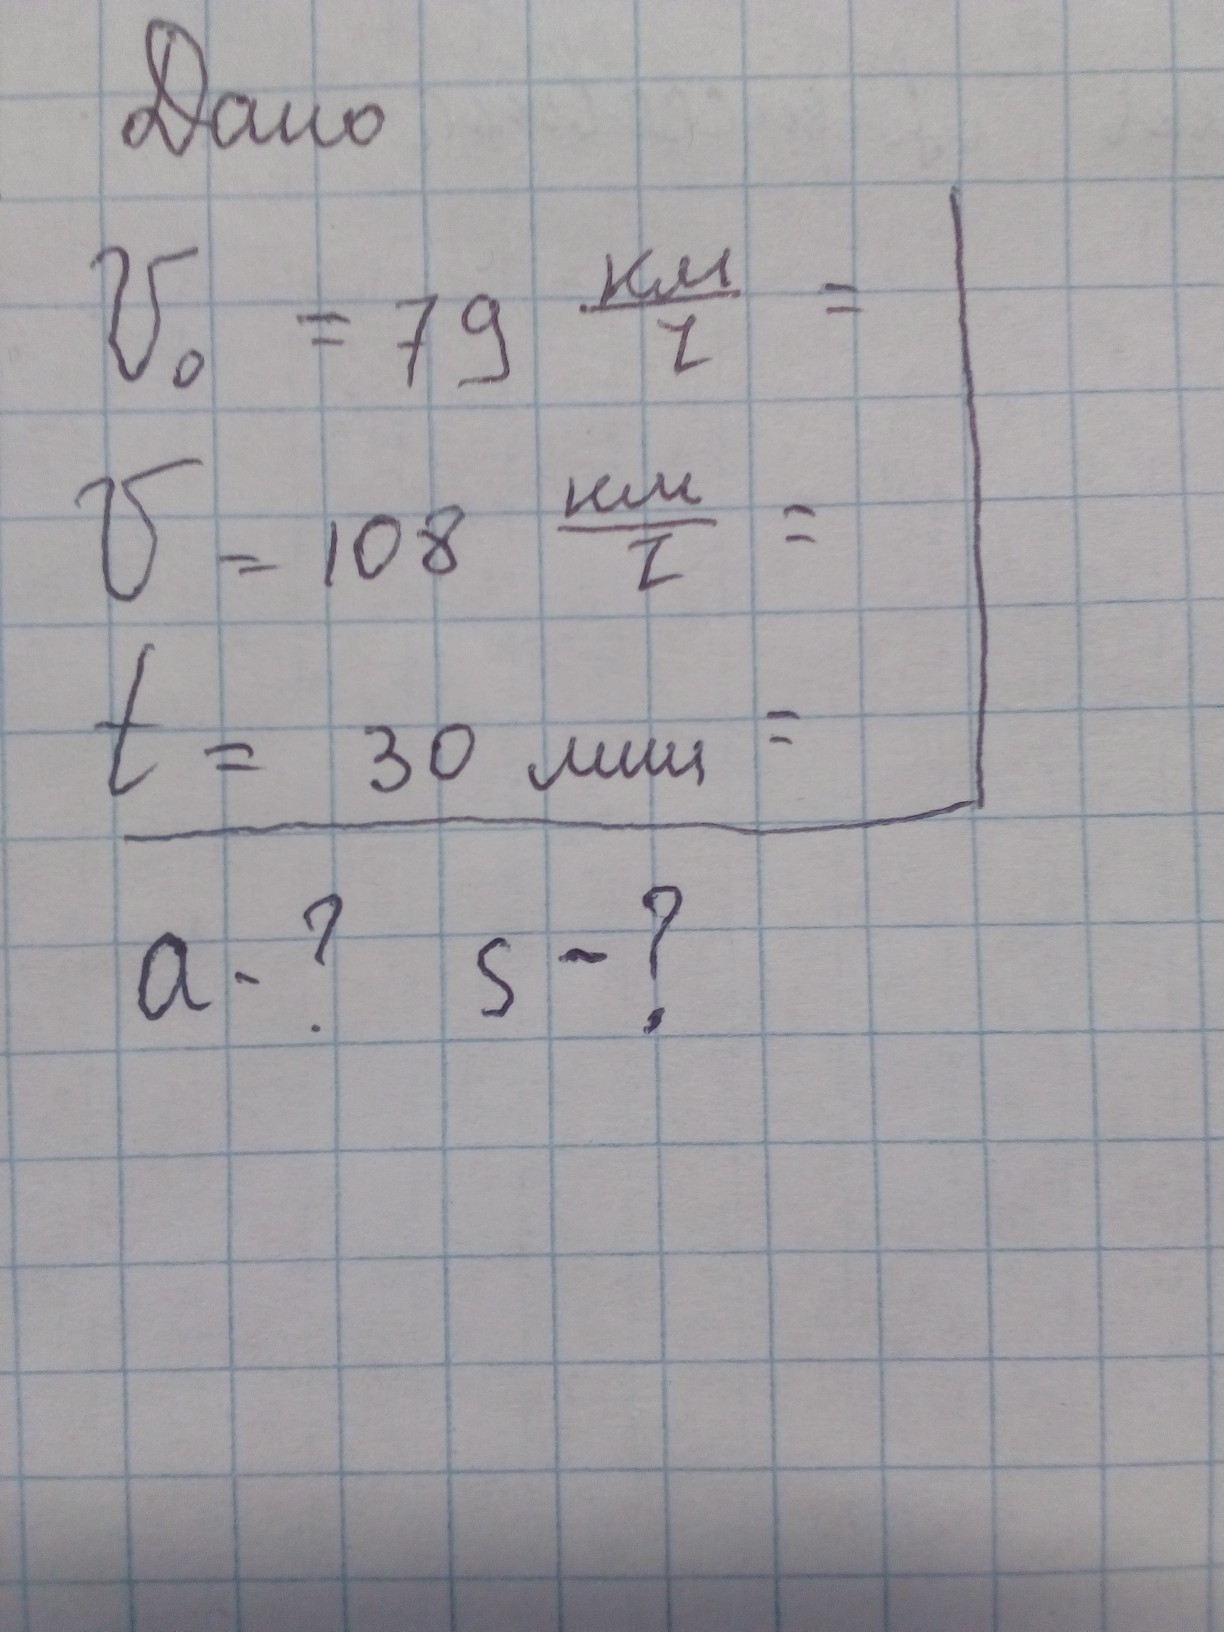 Дано
V₀ = 79 км/ч =
V = 108 км/ч =
t = 30 мин =
a - ? s - ?